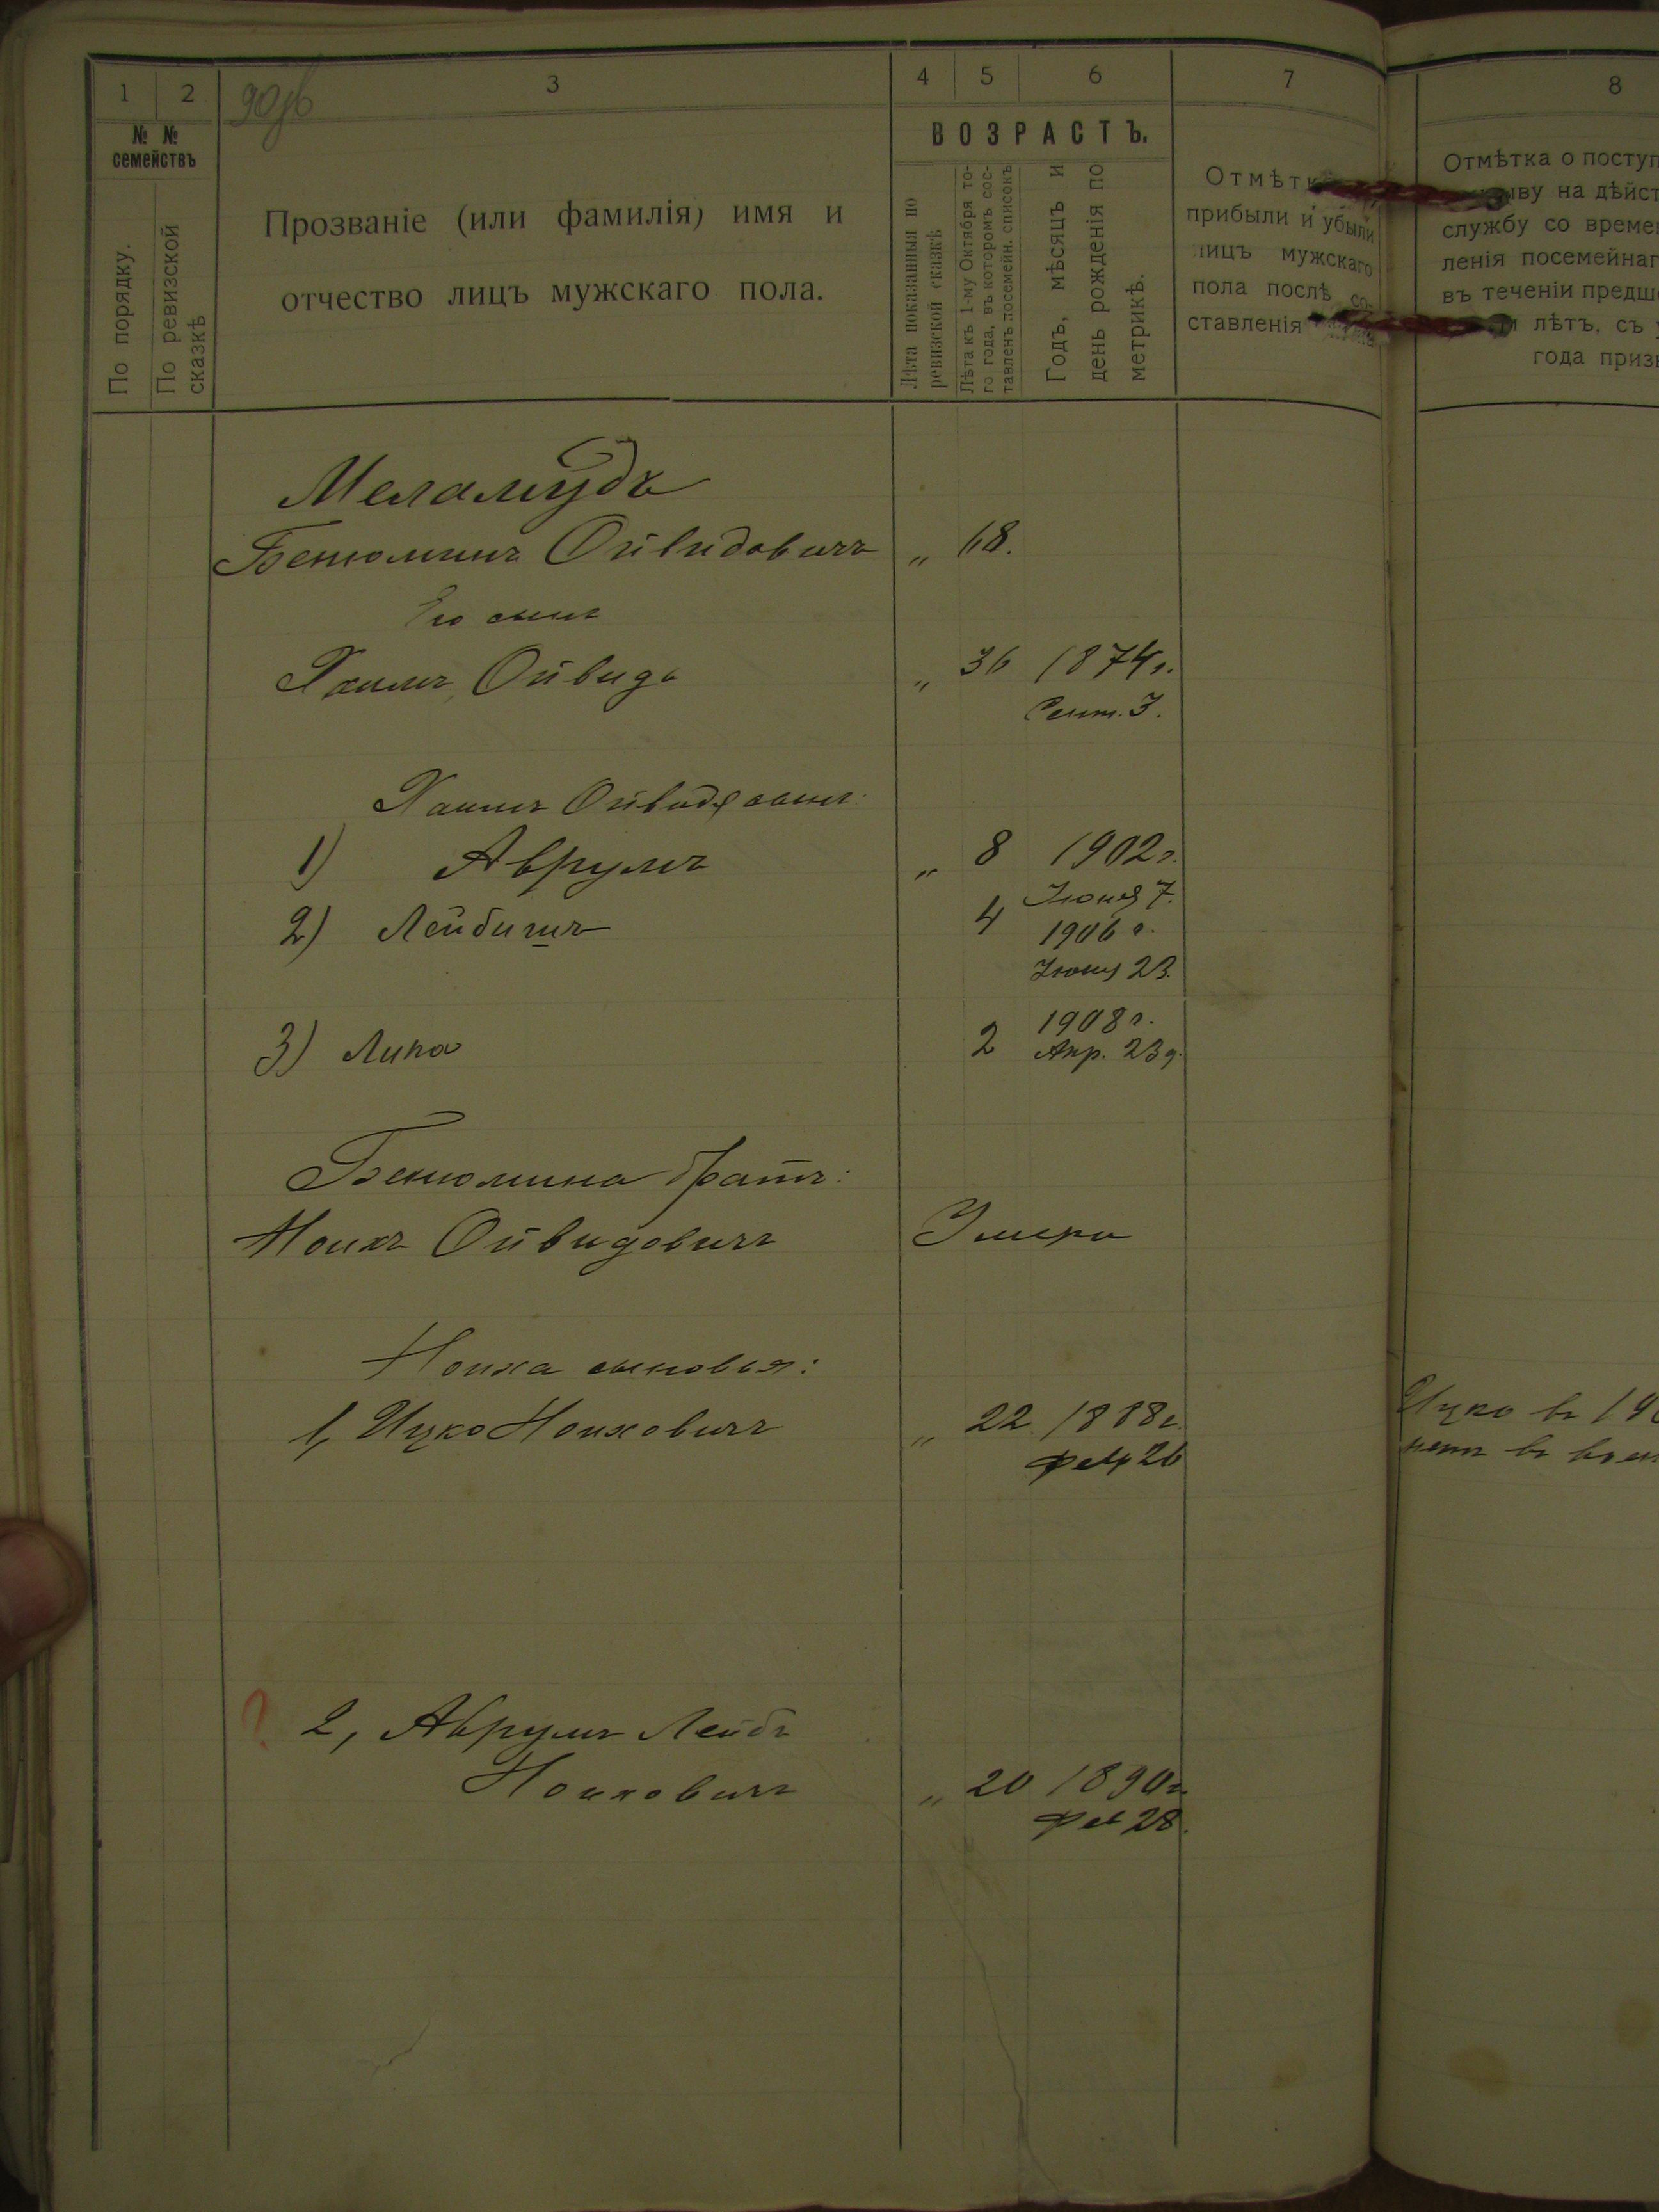 1 2 3 4 5 6 7
90об
№ № семействъ
По порядку.
По ревизской сказкѣ
Прозваніе (или фамилія) имя и
отчество лицъ мужскаго пола.
ВОЗРАСТЪ.
Лѣта показанныя по
ревизской сказкѣ
Лѣта къ 1-му Октября то-
го года, въ которомъ сос-
тавленъ посемейн. списокъ
Годъ, мѣсяцъ и
день рожденія по
метрикѣ.
Отмѣтк
прибыли и убыли
лицъ мужскаго
пола послѣ со-
ставленія
Меламудъ
Бенюминъ Ойвидовичъ „ 68.
Его сынъ
Хаимъ Ойвидъ „ 36 1874 г.
Сент. 3.
Хаимъ Ойвида сынъ:
1) Аврумъ „ 8 1902 г.
Іюня 7.
2) Лейбишъ 4 1906 г.
Іюня 23.
3) Липа 2 1908 г.
Апр. 23 д.
Бенюмина братъ:
Ноихъ Ойвидовичъ Умеръ
Ноиха сыновья:
1, Ицко Ноиховичъ „ 22 1888 г.
Фев 26
? 2, Аврумъ Лейбъ
Ноиховичъ „ 20 1890 г.
Фев 28.
8
Отмѣтка о поступ
ыву на дѣйст
службу со време
ленія посемейнаг
въ теченіи предш
и лѣтъ, съ у
года приз
Ицко въ 19
въ